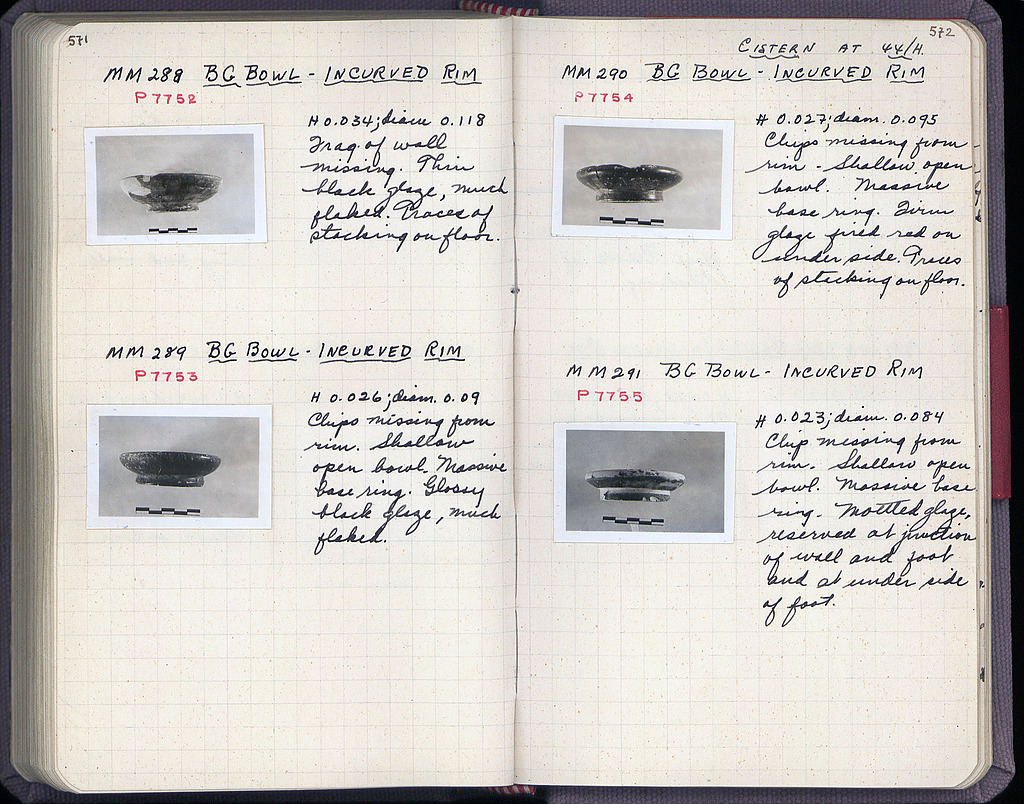 571
MM 288 BG BOWL - INCURVED RIM
P 7752
H 0.034; diam 0.118
Frag. of wall
missing. Thin
black glaze, much
flaked. Traces of
stacking on floor.
MM 289 BG BOWL - INCURVED RIM
P 7753
H 0.026; diam. 0.09
Chips missing from
rim. Shallow
open bowl. Massive
base ring. Glossy
black glaze, much
flaked.
572
CISTERN AT 44/H.
MM 290 BG BOWL - INCURVED RIM
P 7754
H 0.027; diam. 0.095
Chips missing from
rim - Shallow, open
bowl. Massive
base ring. Firm
glaze fired red on
under side. Traces
of stacking on floor.
MM 291 BG BOWL - INCURVED RIM
P 7755
H 0.023; diam. 0.084
Chip missing from
rim. Shallow open
bowl. Massive base
ring. Mottled glaze,
reserved at junction
of wall and foot
and at under side
of foot.